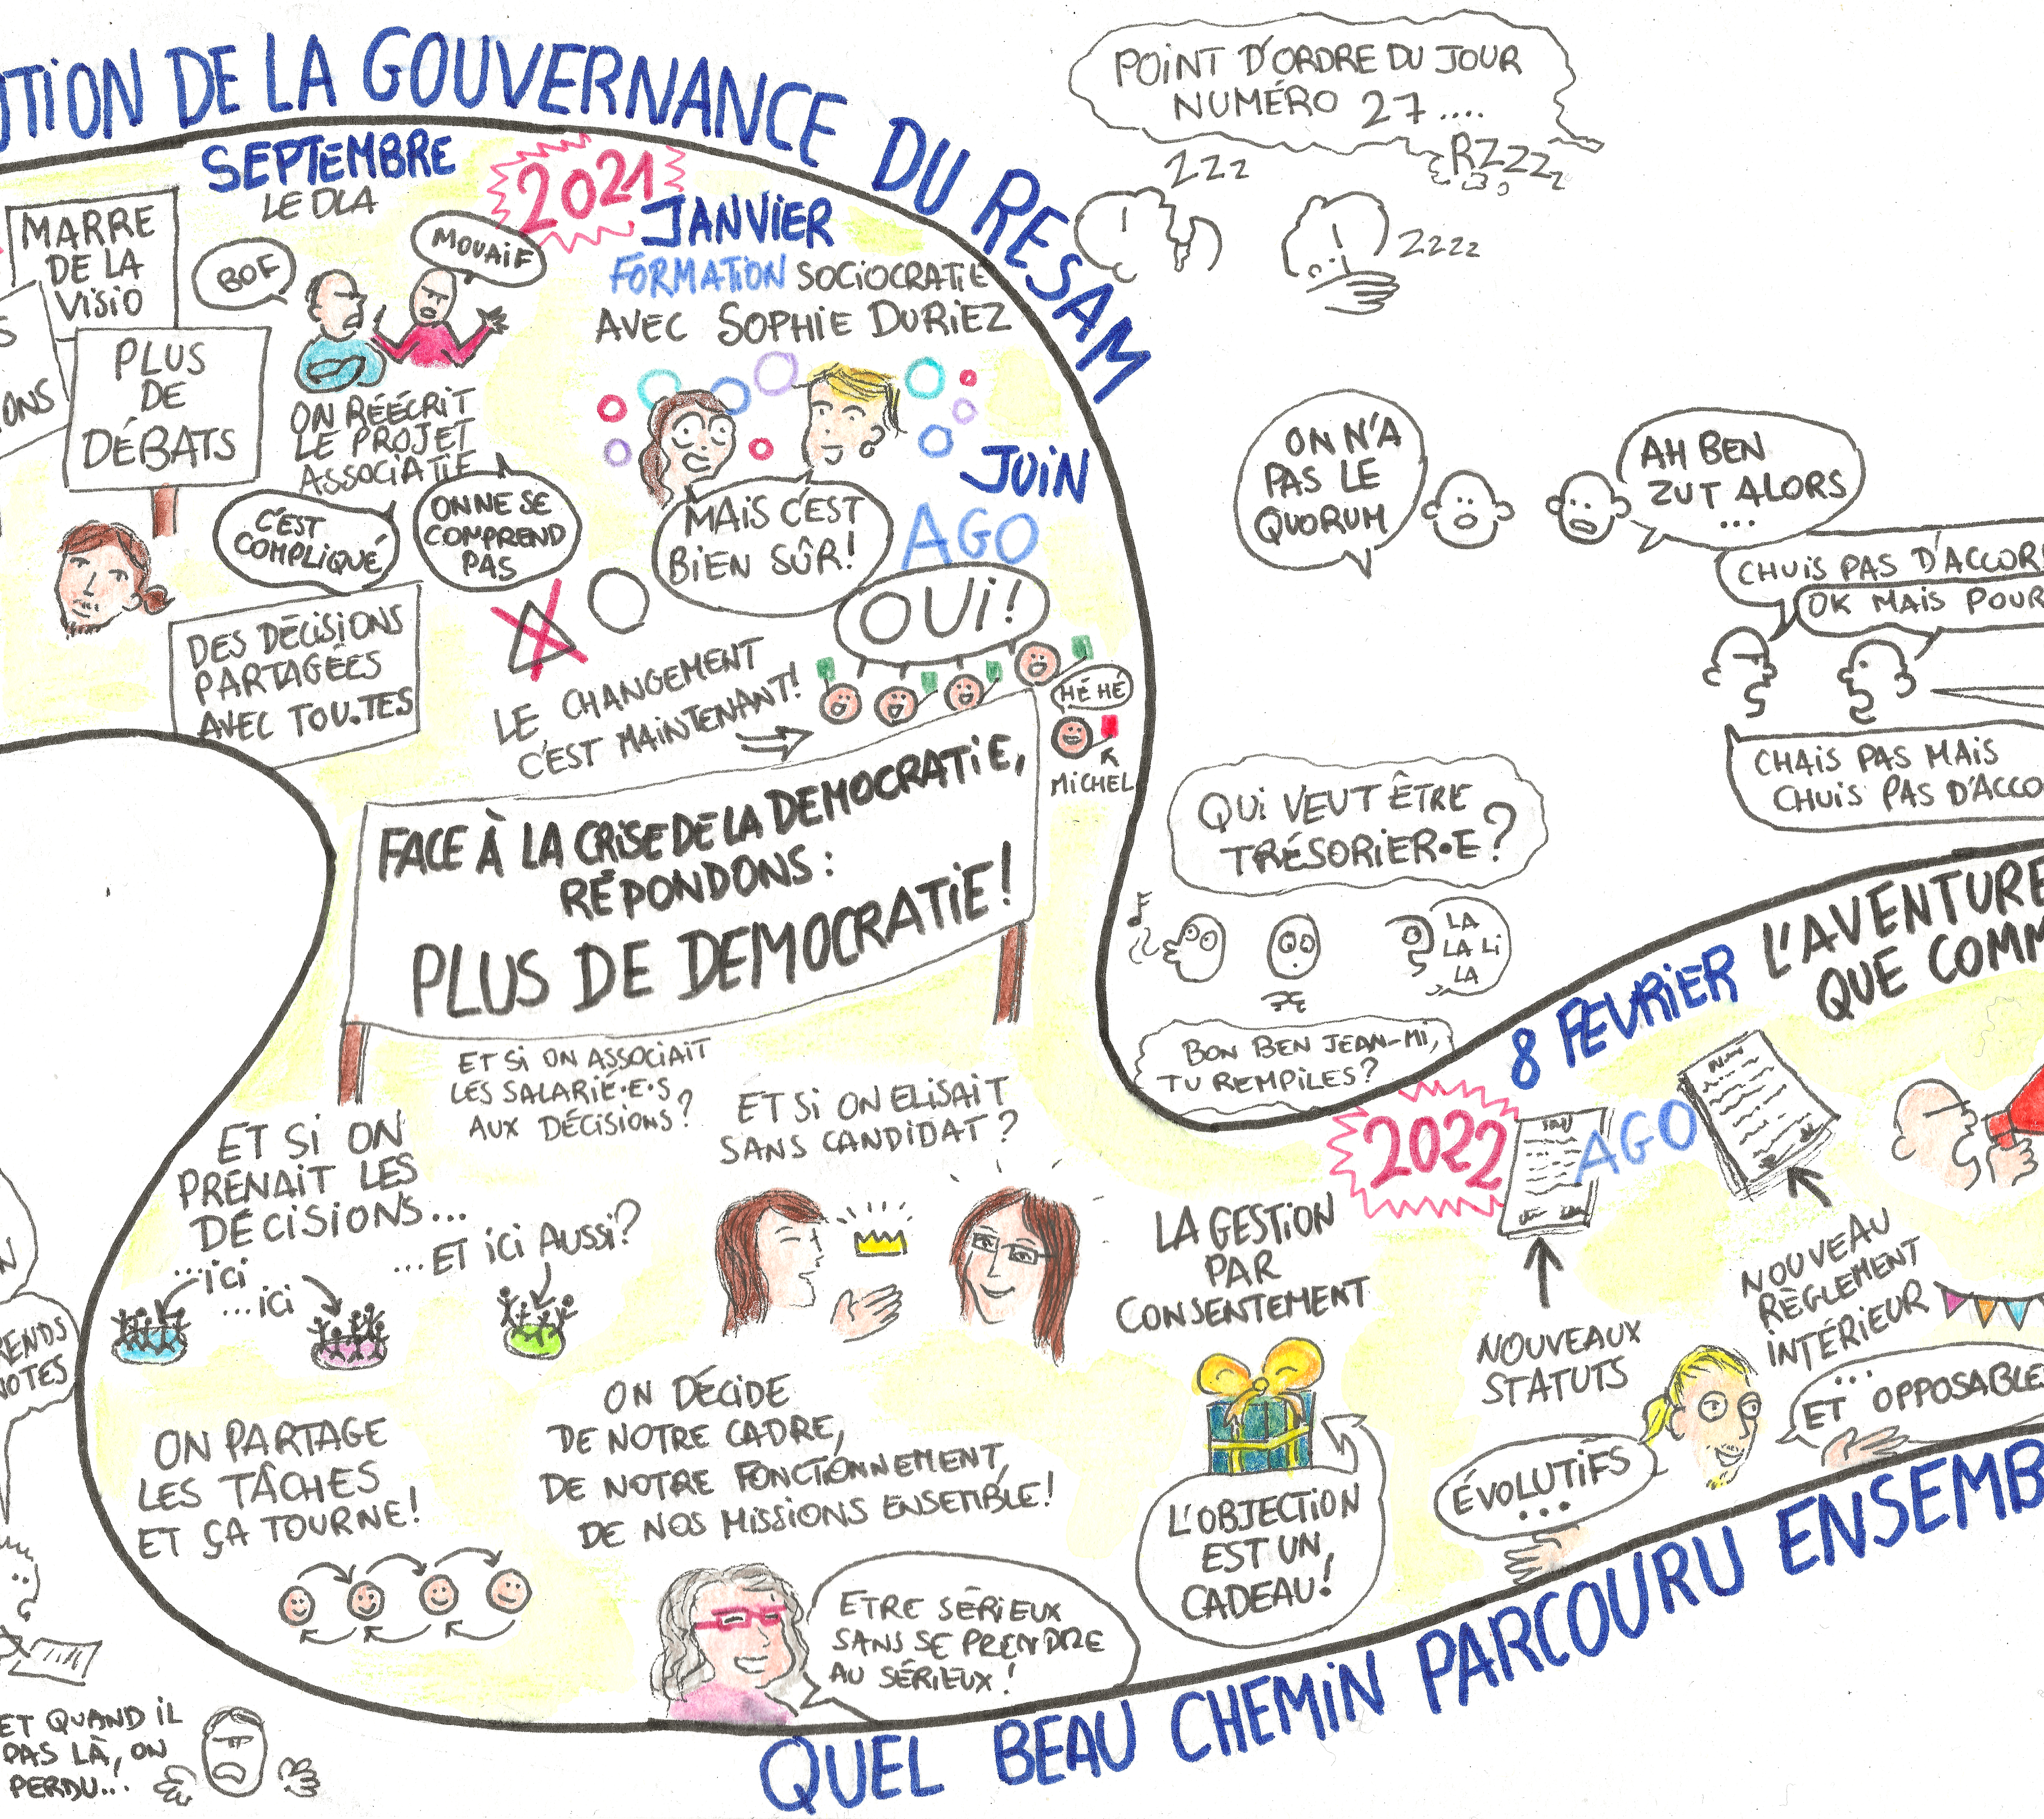 UTION DE LA GOUVERNANCE DU RESAM
SEPTEMBRE
LE DLA
2021
MARRE
DE LA
VISIO
S
ONS
PLUS
DE
DÉBATS
BOF
MOUAIF
ON RÉÉCRIT
LE PROJET
ASSOCIATIF
C'EST
COMPLIQUÉ
ON NE SE
COMPREND
PAS
DES DÉCISIONS
PARTAGÉES
AVEC TOU.TES
JANVIER
FORMATION SOCIOCRATIE
AVEC SOPHIE DURIEZ
MAIS C'EST
BIEN SÛR!
JUIN
AGO
OUI!
LE CHANGEMENT
C'EST MAINTENANT!
HÉ HÉ
MICHEL
FACE À LA CRISE DE LA DEMOCRATIE,
RÉPONDONS :
PLUS DE DEMOCRATIE!
POINT D'ORDRE DU JOUR
NUMÉRO 27....
ZZZ
RZZZZ
ZZZZ
ON N'A
PAS LE
QUORUM
AH BEN
ZUT ALORS
...
CHUIS PAS D'ACCOR
OK MAIS POUR
CHAIS PAS MAIS
CHUIS PAS D'ACCO
QUI VEUT ÊTRE
TRÉSORIER•E?
LA
LA LI
LA
BON BEN JEAN-MI,
TU REMPILES?
ET SI ON ASSOCIAIT
LES SALARIÉ•E•S
AUX DÉCISIONS?
ET SI ON ELISAIT
SANS CANDIDAT?
ET SI ON
PRENAIT LES
DÉCISIONS...
...ICI
...ICI
...ET ICI AUSSI?
ON PARTAGE
LES TÂCHES
ET ÇA TOURNE!
ON DÉCIDE
DE NOTRE CADRE,
DE NOTRE FONCTIONNEMENT,
DE NOS MISSIONS ENSEMBLE!
ETRE SÉRIEUX
SANS SE PRENDRE
AU SÉRIEUX!
LA GESTION
PAR
CONSENTEMENT
L'OBJECTION
EST UN
CADEAU!
2022
8 FEVRIER
AGO
L'AVENTURE
QUE COMM
NOUVEAUX
STATUTS
NOUVEAU
RÈGLEMENT
INTÉRIEUR
ÉVOLUTIFS
...
...
ET OPPOSABLES
N
RENDS
NOTES
ET QUAND IL
PAS LÀ, ON
PERDU...
QUEL BEAU CHEMIN PARCOURU ENSEMB